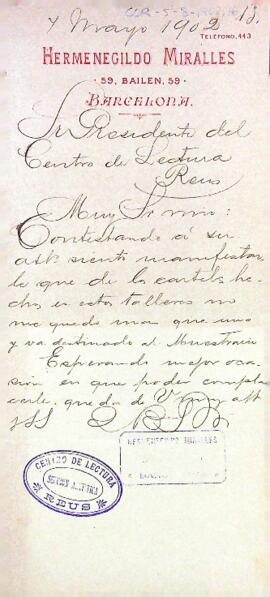 7 Mayo 1902
13.
TELÉFONO, 443
HERMENEGILDO MIRALLES
59, BAILEN, 59
BARCELONA.
Sr Presidente del
Centro de Lectura
Reus
Muy Sr mio:
Contestando á su
att siento manifestar
le que de los cartels he
chos en estos talleres no
me queda mas que uno
y va destinado al Muestrario
Esperando mejor oca
sión en que poder compla
cerle, queda de V muy att
y SS Q B S M
HERMENEGILDO MIRALLES
CENTRO DE LECTURA
REUS